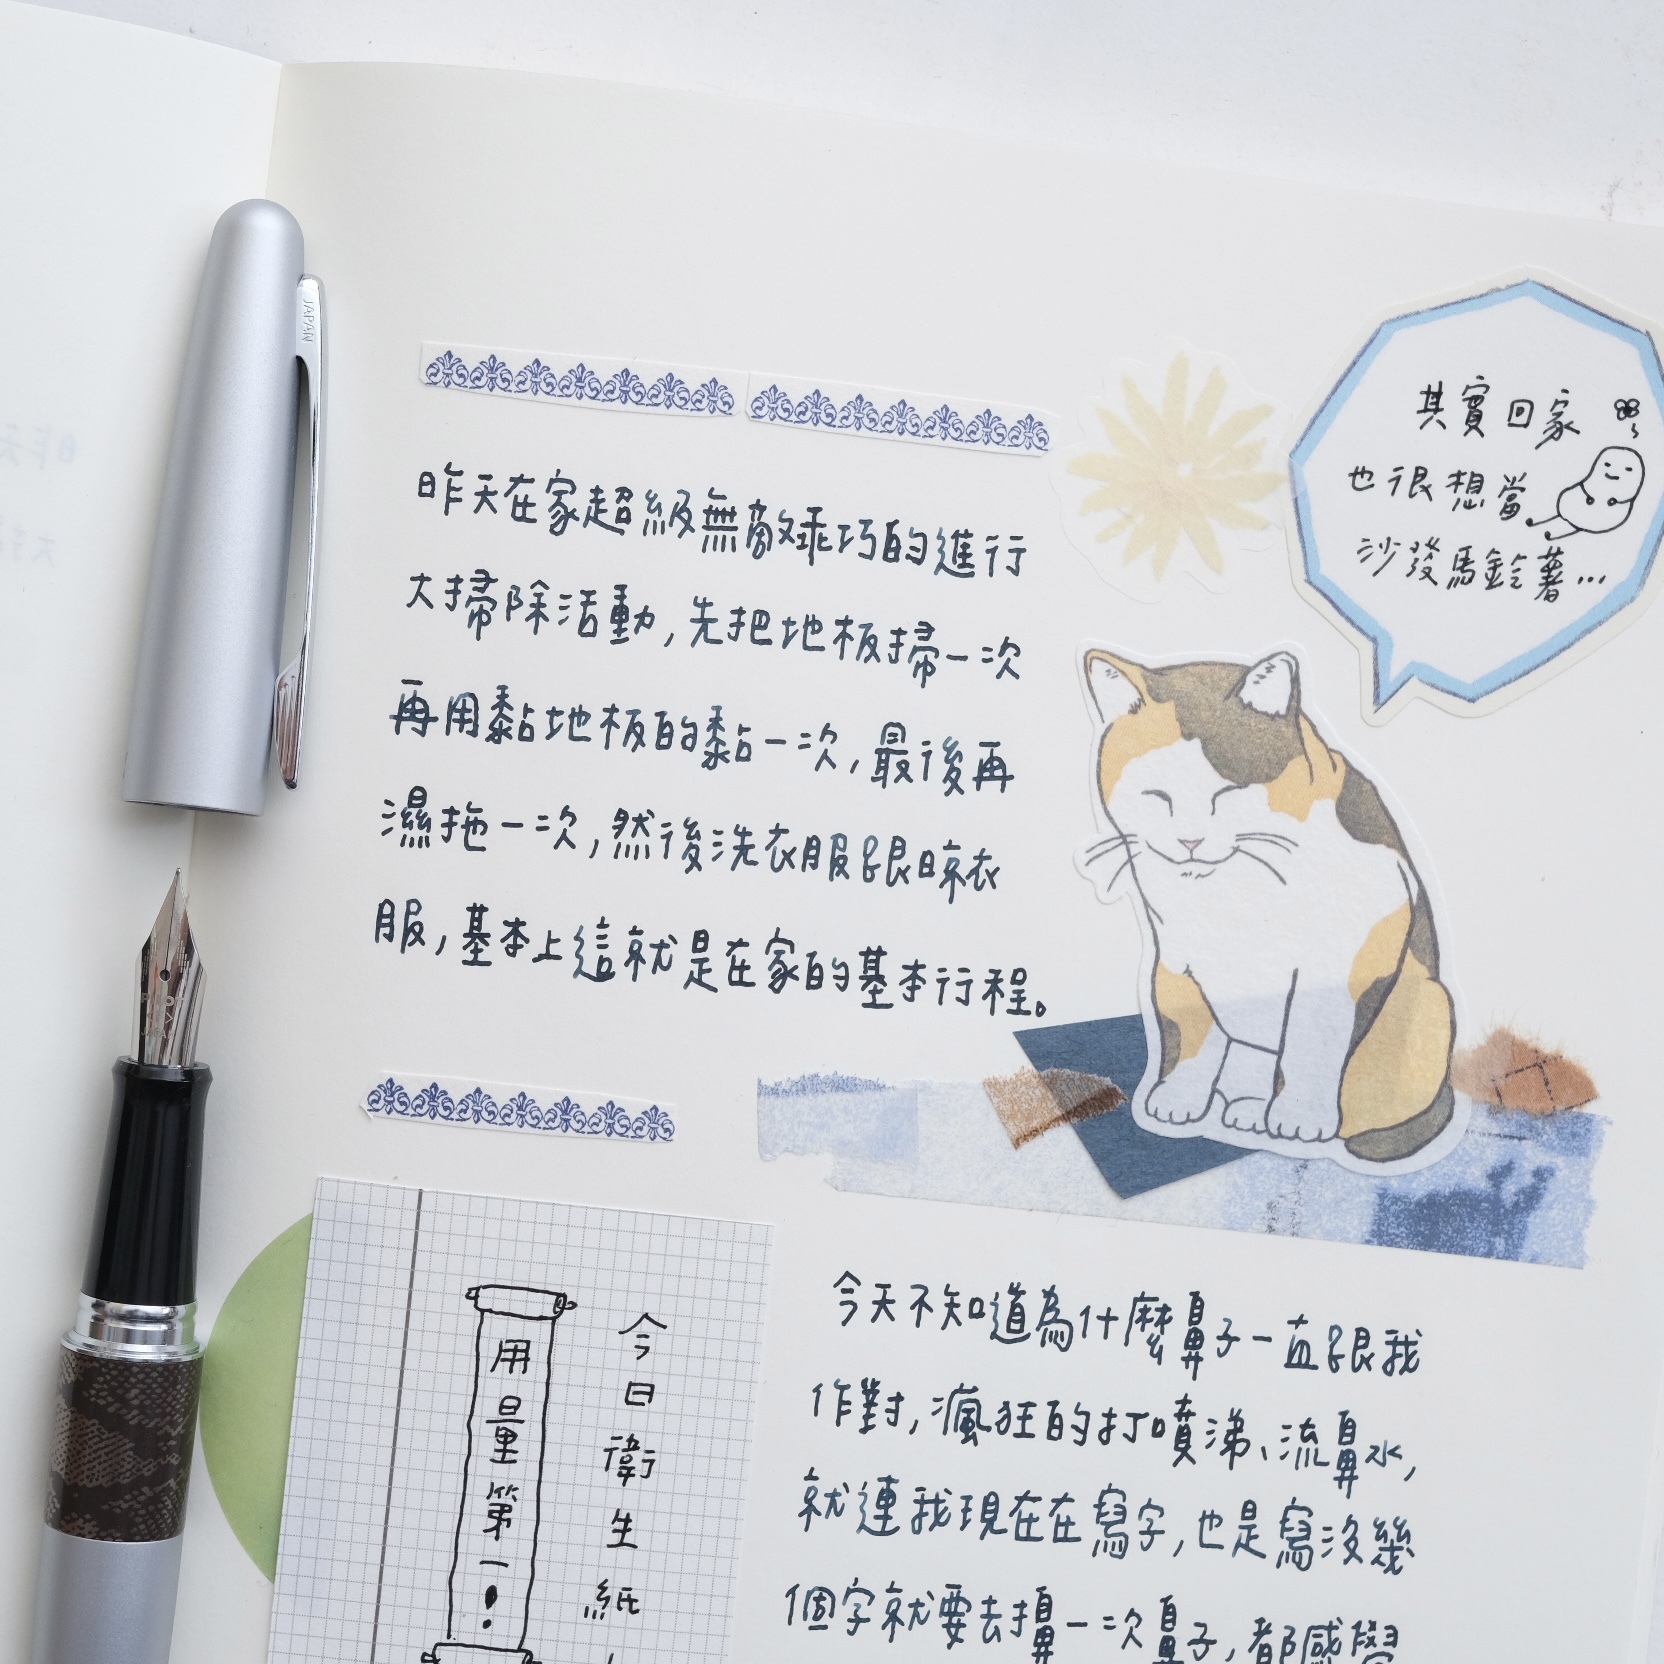 昨天在家超級無敵乖巧的進行
大掃除活動,先把地板掃一次
再用黏地板的黏一次,最後再
濕拖一次,然後洗衣服跟晾衣
服,基本上這就是在家的基本行程。
其實回家
也很想當
沙發馬鈴薯...
今日衛生紙
用量第一!
今天不知道為什麼鼻子一直跟我
作對,瘋狂的打噴涕、流鼻水,
就連我現在在寫字,也是寫沒幾
個字就要去擤一次鼻子,都感覺
JAPAN
PILOT